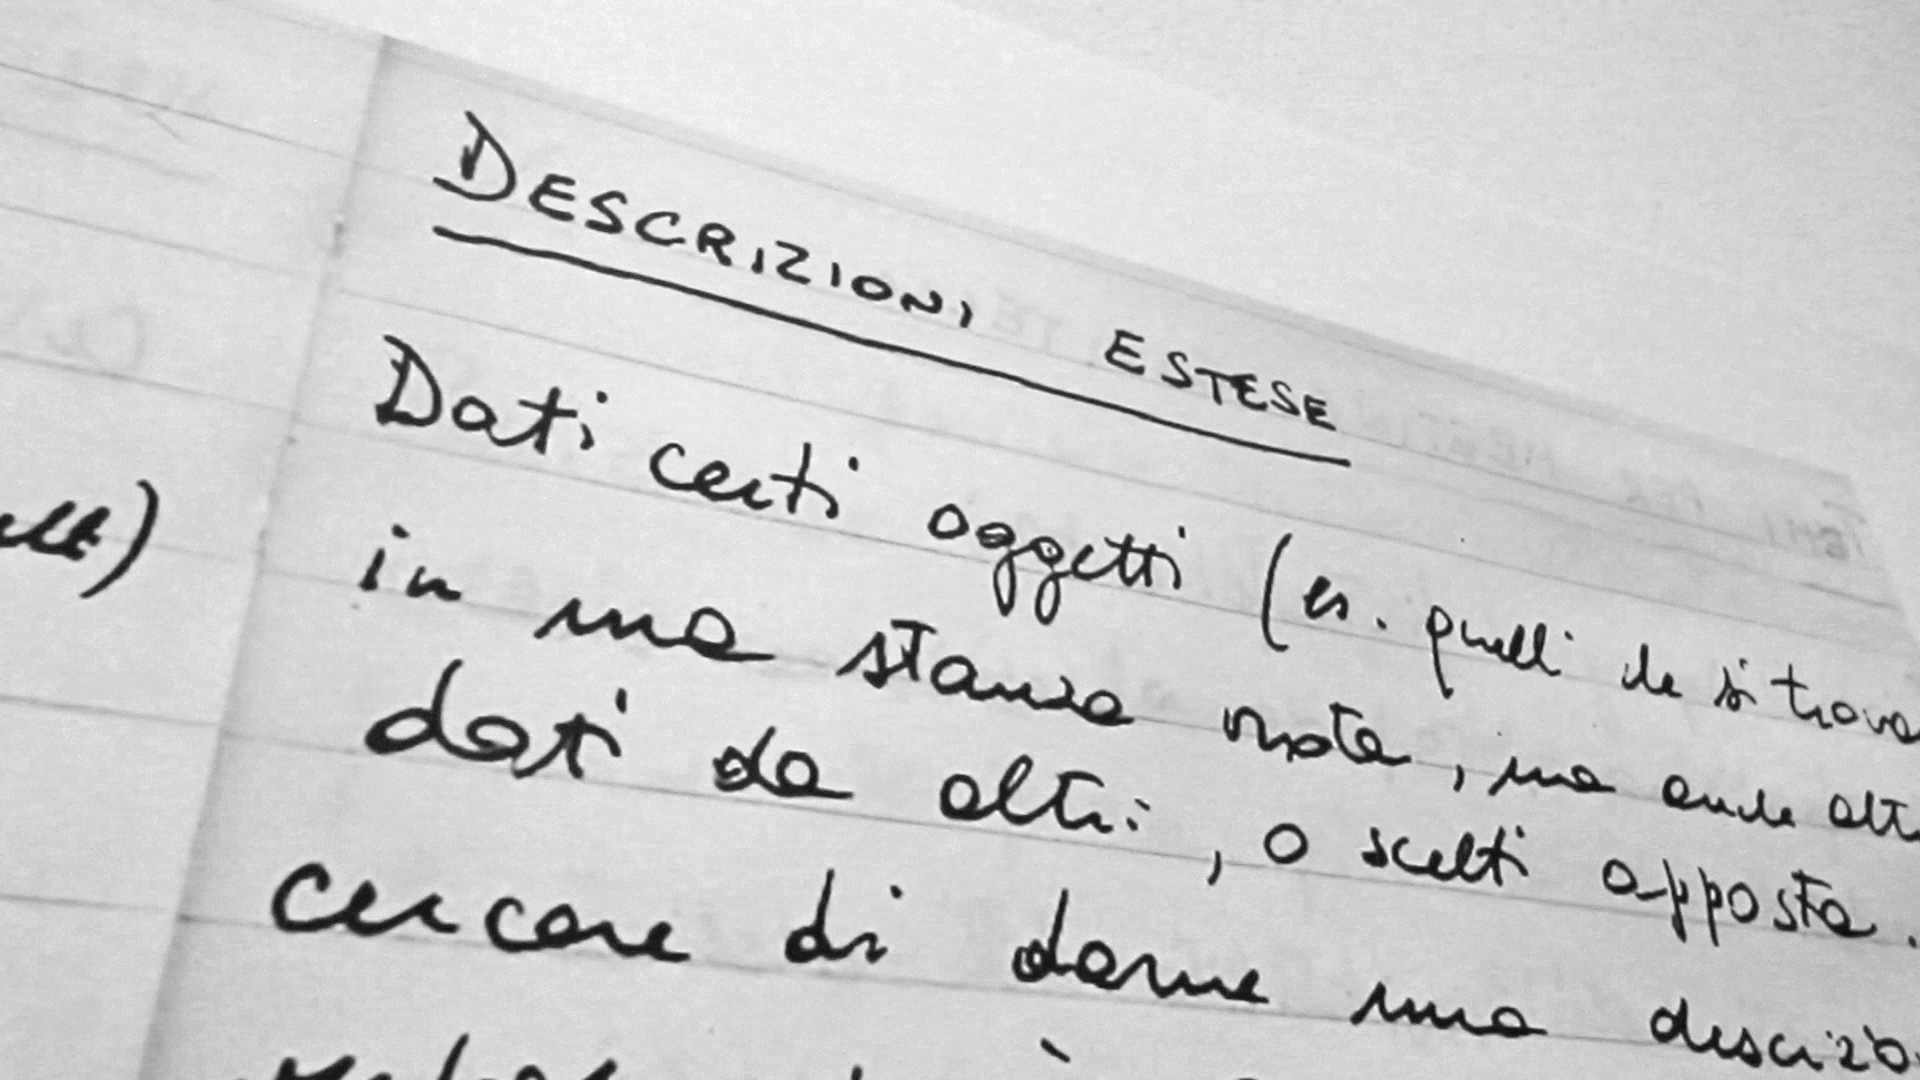 DESCRIZIONI ESTESE
Dati certi oggetti (es. quelli che si trova
in una stanza vista, ma anche alt
dati da altri, o scelti apposta.
cercare di darne una descrizio